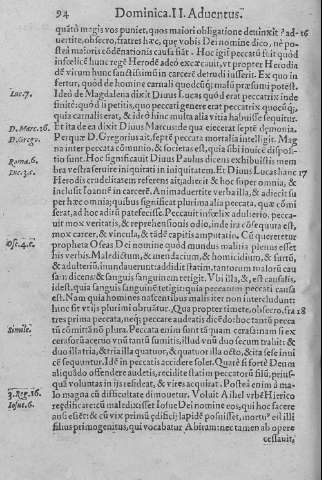 94 Dominica. II. Aduentus.
quãto magis vos punier, quos maiori obligatione deuinxit? ad-
uertite, obsecro, fratres hæc, quę vobis Dei nomine dico, nè po-
steà maioris cõdẽnationis causa fiãt
infœlicẽ hunc regẽ Herodẽ adeò excæcauit, vt propter Herodia
dẽ virum hunc sanctissimũ in carcerẽ detrudi iusserit. Ex quo in
fertur, quòd de homine carnali quodcũq; malũ præsumi potest.
Luc. 7.
Ideò de Magdalena dixit Diuus Lucas quòd erat peccatrix inde
finitè: quòd si petitis, quo peccati genere erat peccatrix quocũq;
quia carnalis erat, & ideò hinc multa alia vitia habuisse sequitur.
D. Marc. 16.
Et ita de ea dixit Diuus Marcus
Per quæ D. Gregorius ait, septẽ peccata mortalia intelligit. Mag
na inter peccata cõmunio, & societas est, quia sibi inuicẽ disposi-
Roma. 6.
tio sunt. Hoc significauit Diuus Paulus dicens exhibuistis mem
bra vestra seruire iniquitati in iniquitatem. Et Diuus Lucas hanc 17
Herodis crudelitatem referens ait, adiecit & hoc super omnia, &
inclusit Ioannẽ in carcerẽ. Animaduertite verba illa, & adiecit su
per hæc omnia; quibus significat plurima alia peccata, quæ cõmi
serat, ad hoc adiri patefecisse. Peccauit infœlix adulterio, pecca-
uit mox veritatis, & reprehensionis odio, inde ira cõsequuta est,
mox carcer, & vincula, & tãdẽ capitis amputatio. Cũ quereretur
propheta Oseas Dei nomine quòd mundus malitia plenus esset
his verbis. Maledictum, & mendacium, & homicidium, & furtũ,
& adulteriũ inundauerunt: addidit statim, tantorum malorũ cau
sam dicens: & sanguis sanguinem tetigit. Vbi illa, &, est causalis,
idest, quia sanguis sanguinẽ tetigit: quia peccatum peccati causa
est. Nam quia homines nascentibus malis iter non intercludunt
hinc fit vt vis pluribi obruãtur. Quapropter timete, obsecro, fra 18
tres prima peccata, neq; peccare audeatis dicẽdo: hoc tantũ pecca
Simile.
tũ cõmittã nõ plura. Peccata enim sunt tã quam cerasa: nam si ex
cerasorũ aceruo vnũ tantũ sumitis, illud vnũ duo secum trahit: &
duo illa tria, & tria illa quatuor, & quatuor illa octo, & ita sese inui
cẽ sequuntur. Idẽ in peccatis accidere solet. Quarè si fortè Deum
aliquãdo offendere audetis, recidite statim peccatorũ filũ, prius-
quã voluntas in ijs resideat, & vires acquirat. Posteà enim à ma-
3. Reg. 16.
lo magna cũ difficultate dimouetur. Voluit
Iosue. 6.
reędificare: cũ maledixisset Iosue Dei nomine eos, qui hoc facere
filius primogenitus, qui vocabatur Abiram: nec tamen ab opere
cessauit,